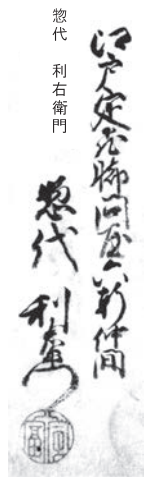 江戸定飛脚問屋六軒仲間
惣代
利右衛門
惣代 利右衛門